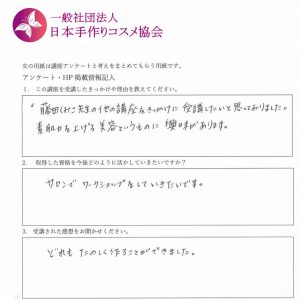 一般社団法人
日本手作りコスメ協会
次の用紙は講座アンケートと考えをまとめてもらう用紙です。
アンケート・HP掲載情報記入
1. この講座を受講したきっかけや理由を教えてください。
藤田くわこ先生の他の講座をきっかけに受講したいと思っておりました。
素肌力を上げる美容というものに興味があります。
2. 取得した資格を今後どのように活かしていきたいですか？
サロンでワークショップをしていきたいです。
3. 受講された感想をお聞かせください。
どれもたのしく作ることができました。